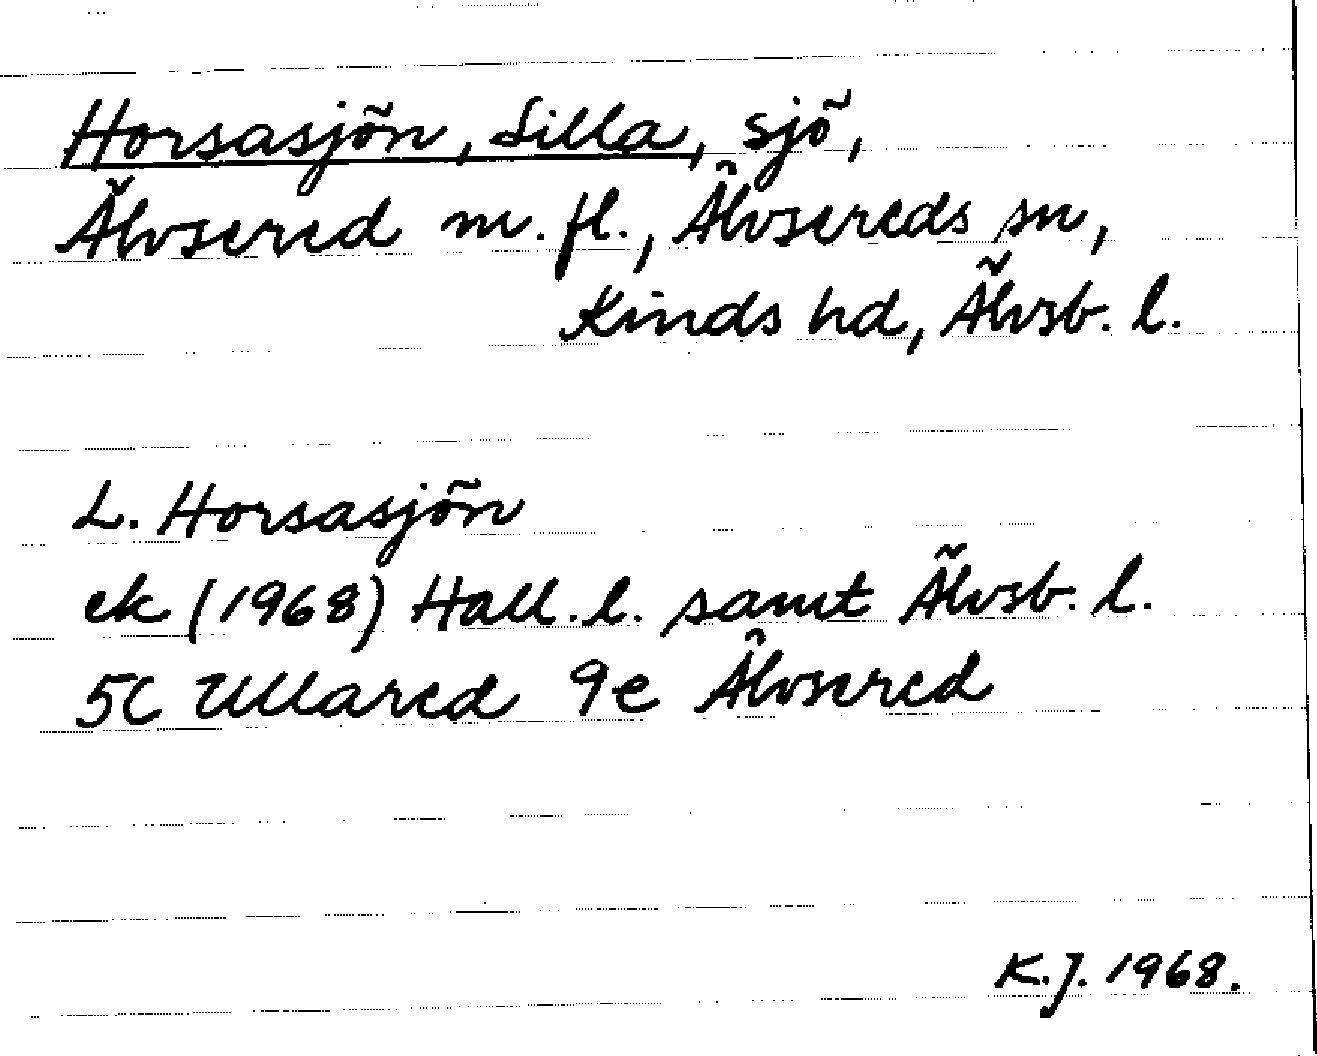 Horsasjön, Lilla, sjö,
Älvsered m. fl., Älvsereds sn,
Kinds hd, Älvsb. l.
L. Horsasjön
ek (1968) Hall. l. samt Älvsb. l.
5C Ullared 9e Älvsered
K.J. 1968.